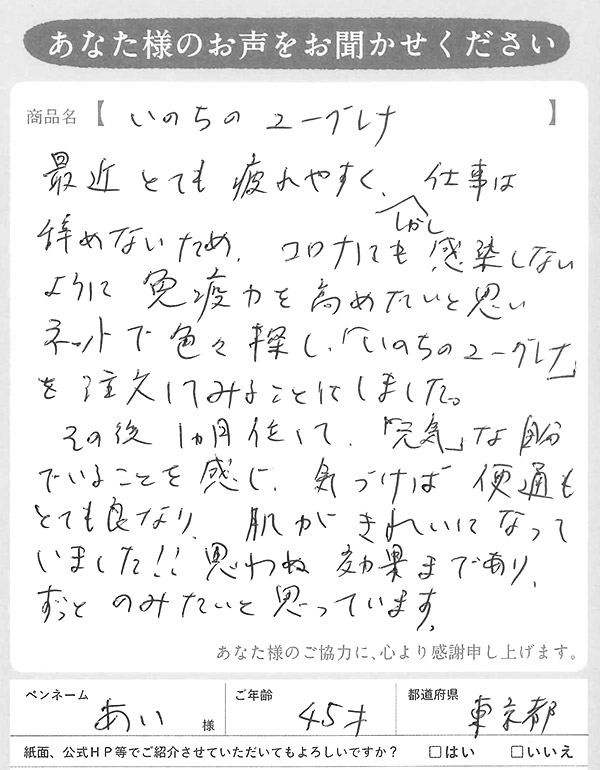 あなた様のお声をお聞かせください
商品名【 いのちのユーグレナ 】
最近とても疲れやすく、しかし仕事は
辞めないため、コロナにも感染しない
ように免疫力を高めたいと思い
ネットで色々探し、「いのちのユーグレナ」
を注文してみることにしました。
その後1ヵ月位して、「元気」な自分
でいることを感じ、気づけば便通も
とても良なり、肌がきれいになって
いました!!思わぬ効果まであり、
ずっとのみたいと思っています。
あなた様のご協力に、心より感謝申し上げます。
ペンネーム あい 様 ご年齢 45才 都道府県 東京都
紙面、公式HP等でご紹介させていただいてもよろしいですか? □はい □いいえ